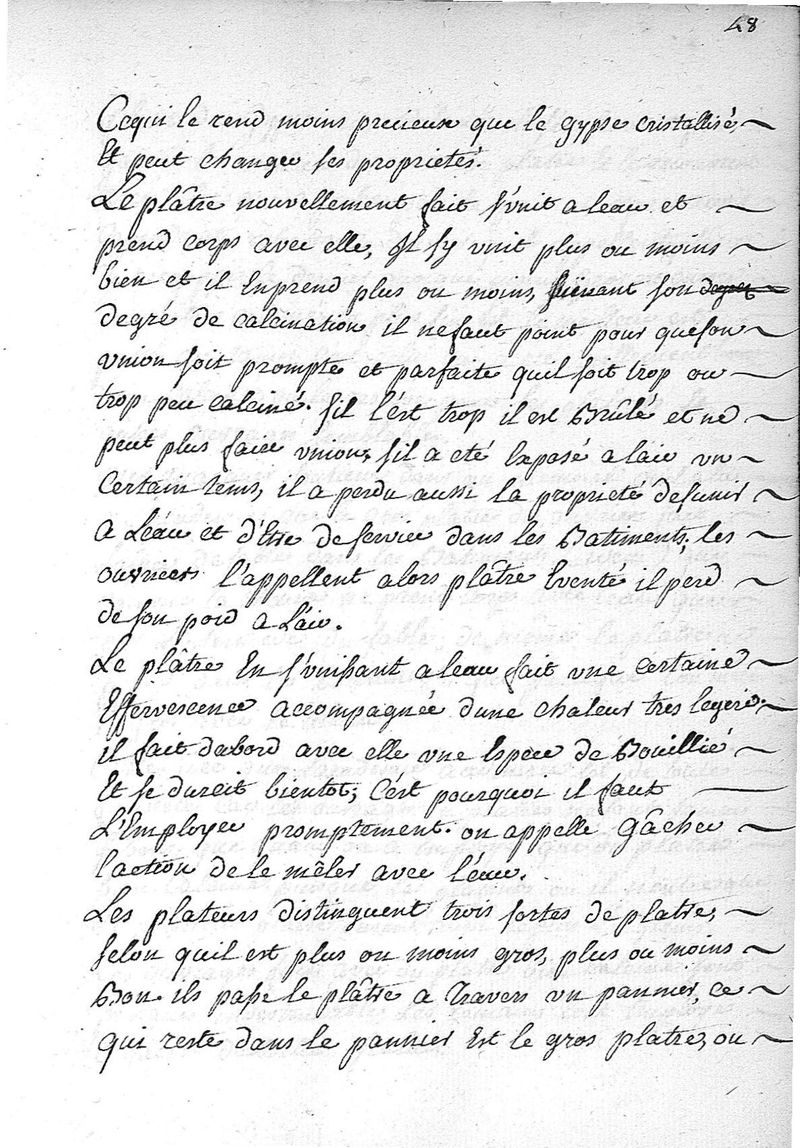 48
Cequi le rend moins precieux que le gypse cristallisé,
Et peut changer ses proprietés.
Le plâtre nouvellement fait s'vnit a leau et
prend corps avec elle, Il s'y vnit plus ou moins
bien et il En prend plus ou moins, suivant son
degré de calcination il ne faut point pour que son
vnion soit prompte et parfaite quil soit trop ou
trop peu calciné. s'il l'est trop il est Brûlé et ne
peut plus faire vnion, s'il a eté Exposé a lair vn
Certain tems, il a perdu aussi la proprieté de sunir
a Léau et d'Etre de service dans les Batiments, les
ouvriers l'appellent alors plâtre Eventé il perd
de son poid a Lair.
Le plâtre En s'vnissant a leau fait vne certaine
Effervescence accompagnée dune chaleur tres legere.
il fait dabord avec elle vne Espece de Bouillie
Et se durcit bientot; C'est pourquoi il faut
L'Employer promptement. on appelle Gâcher
laction de le mêler avec l'éau.
Les plateurs distinguent trois sortes de platre,
selon quil est plus ou moins gros, plus ou moins
Bon. ils passe le plâtre a Travers vn pannier, ce
qui reste dans le pannier Est le gros platre, ou